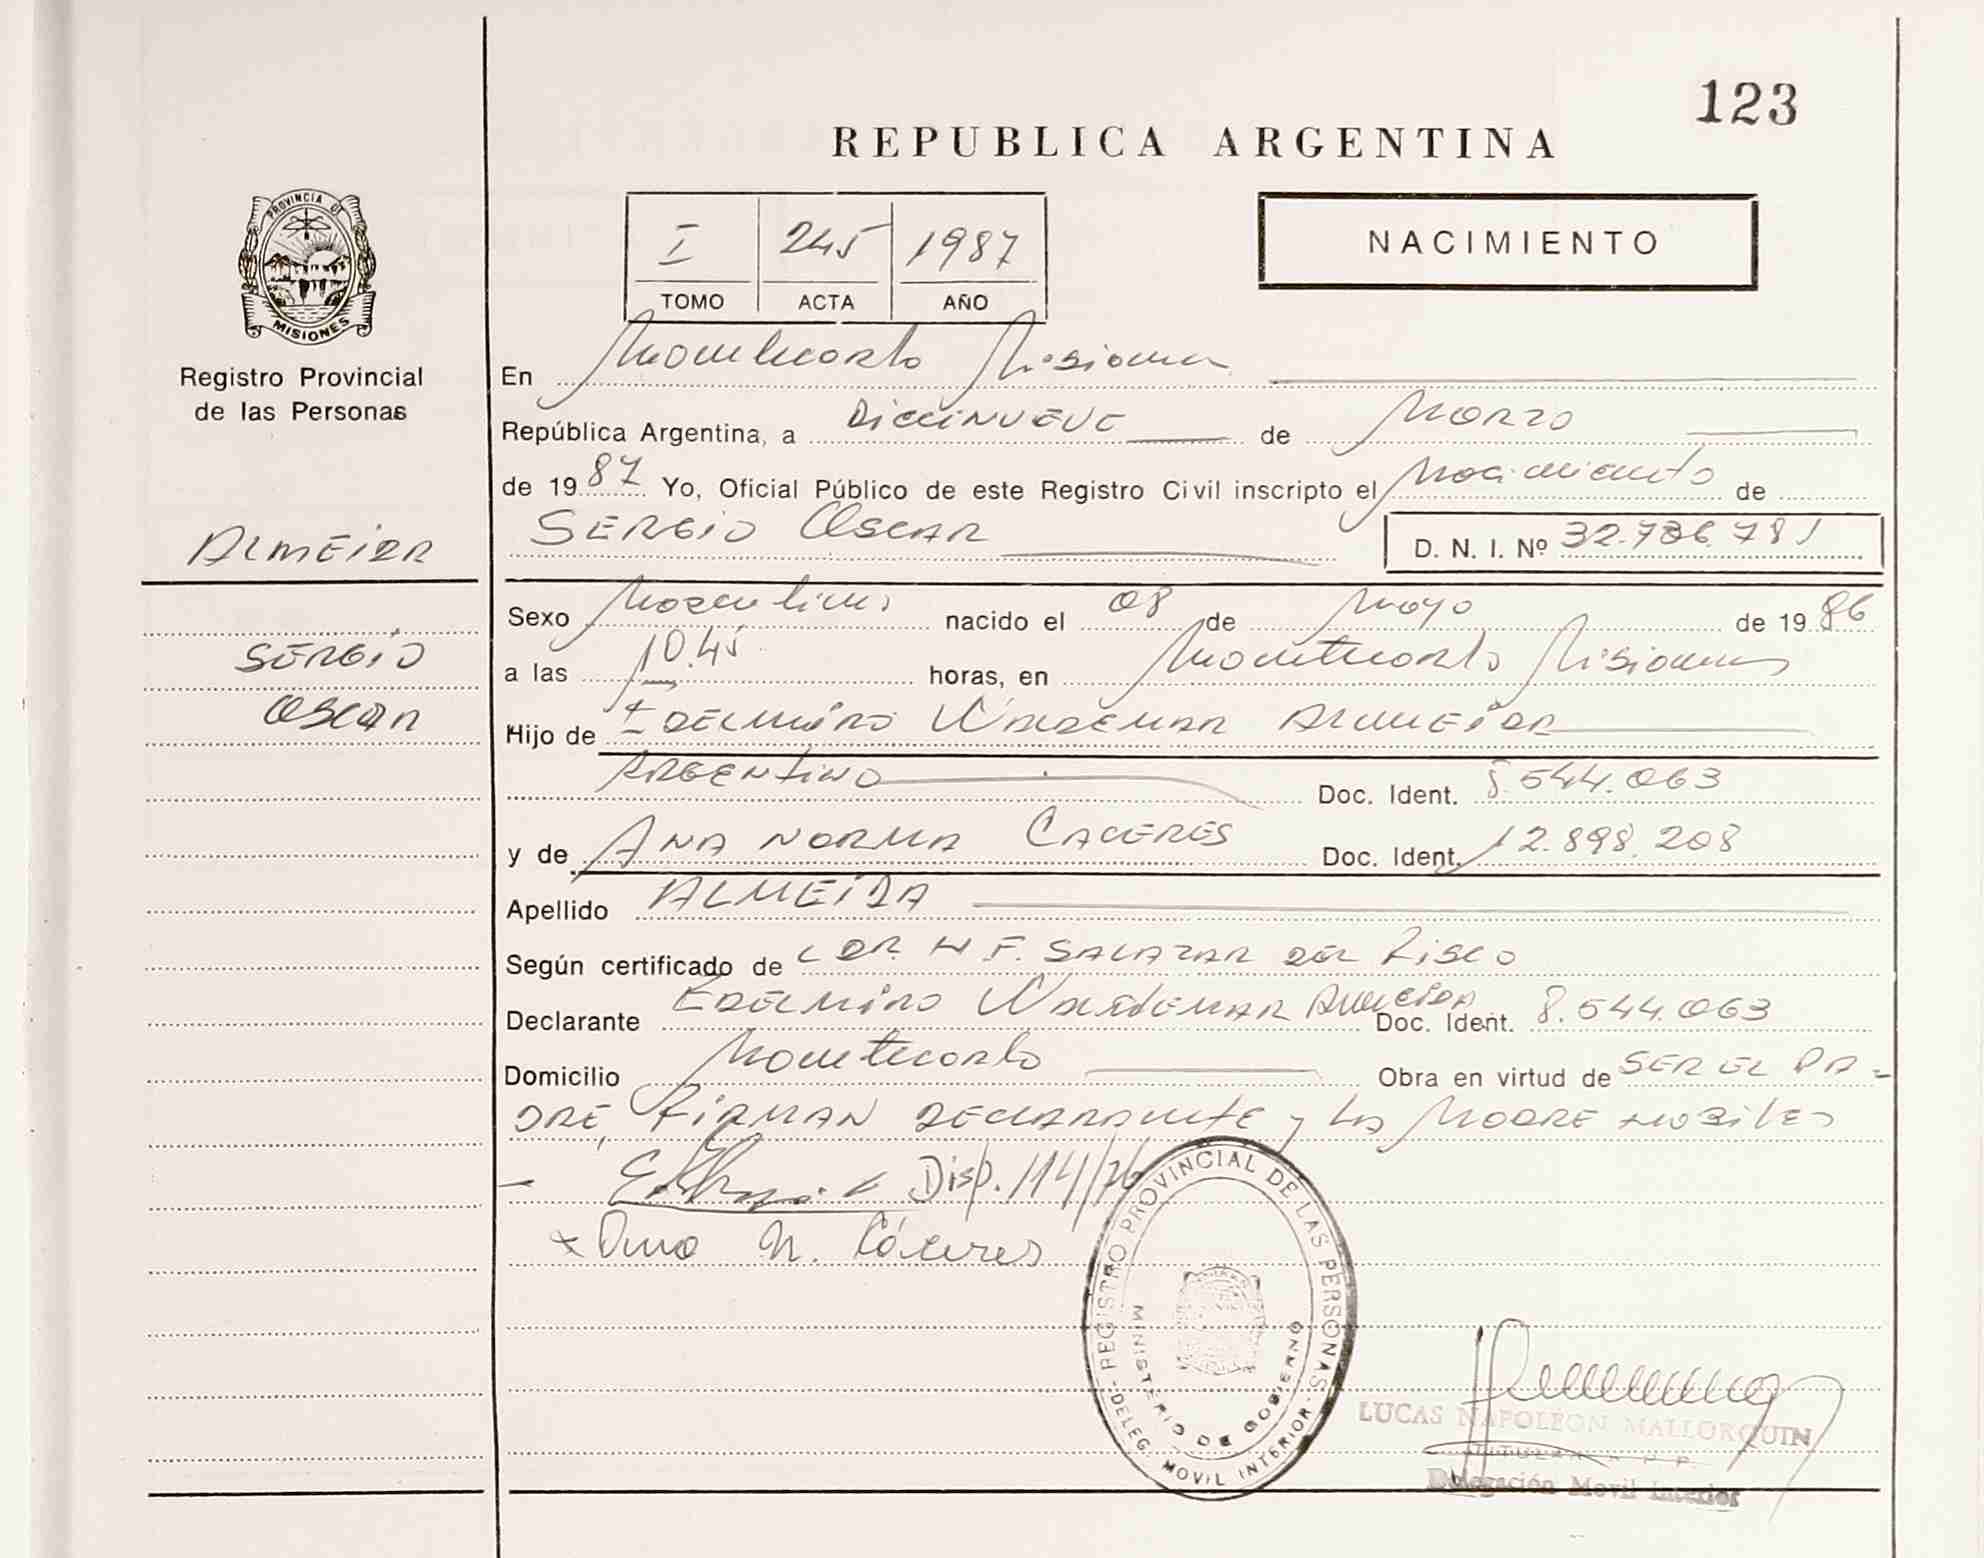 123
REPUBLICA ARGENTINA
PROVINCIA DE
MISIONES
Registro Provincial
de las Personas
I 245 1987
TOMO ACTA AÑO
NACIMIENTO
En Montecarlo Misiones
República Argentina, a Diecinueve de Marzo
de 1987 Yo, Oficial Público de este Registro Civil inscripto el Nacimiento de
ALMEIDA
SERGIO OSCAR D. N. I. Nº 32.736.781
Sexo Masculino nacido el 08 de Mayo de 1986
SERGIO
a las 10.45 horas, en Montecarlo Misiones
OSCAR
Hijo de EDELMIRO WALDEMAR ALMEIDA
ARGENTINO Doc. Ident. 8.544.063
y de ANA NORMA CACERES Doc. Ident. 12.898.208
Apellido ALMEIDA
Según certificado de DR. W F. SALAZAR DEL RISCO
Declarante EDELMIRO WALDEMAR ALMEIDA Doc. Ident. 8.544.063
Domicilio Montecarlo Obra en virtud de SER EL PA-
DRE, FIRMAN DECLARANTE y LA MADRE
Disp. 114/76
Ana N. Cáceres
REGISTRO PROVINCIAL DE LAS PERSONAS
MINISTERIO DE GOBIERNO
DELEG. MOVIL INTERIOR
LUCAS NAPOLEON MALLORQUIN
TITULAR R P P
Delegación Movil Interior